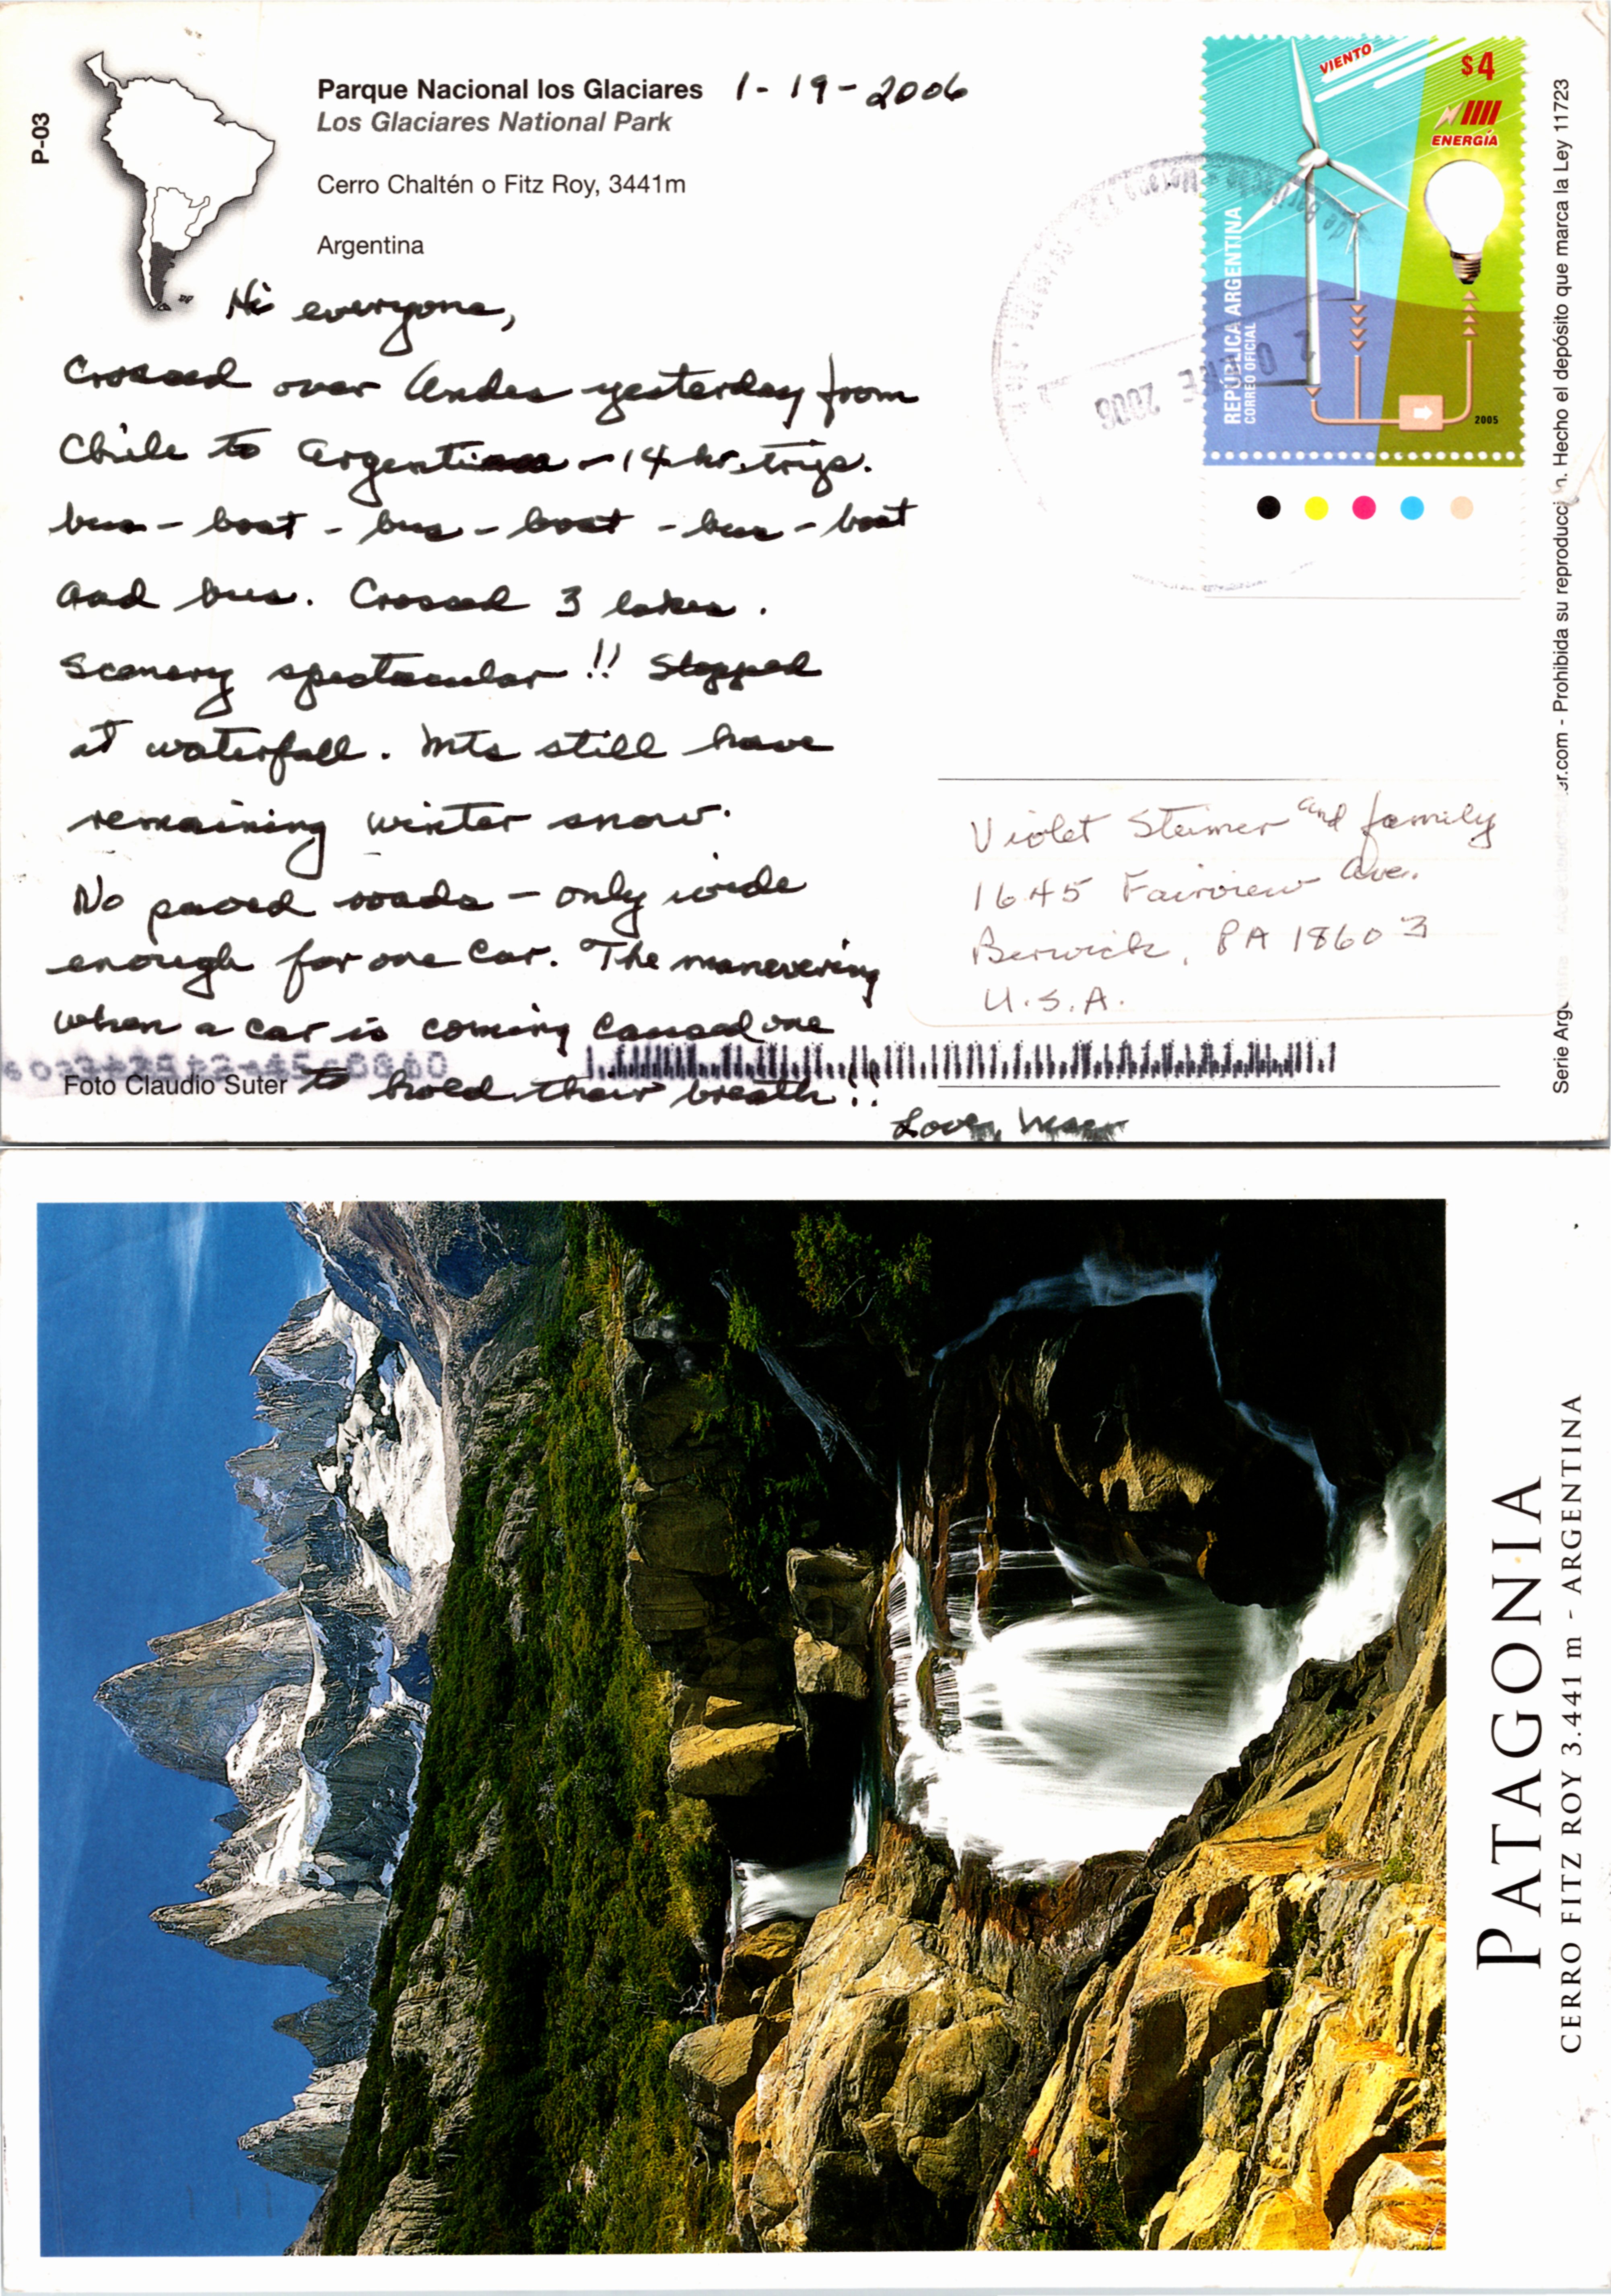 P-03
Parque Nacional los Glaciares 1-19-2006
Los Glaciares National Park
Cerro Chaltén o Fitz Roy, 3441m
Argentina
Hi everyone,
Crossed over Andes yesterday from
Chile to Argentina - 14 hr. trip.
bus - boat - bus - boat - bus - boat
and bus. Crossed 3 lakes.
Scenery spectacular!! Stopped
at waterfall. Mts still have
remaining winter snow.
No paved roads - only wide
enough for one car. The manevering
when a car is coming caused one
Foto Claudio Suter to hold their breath!!
Love,
VIENTO
$4
ENERGÍA
REPÚBLICA ARGENTINA
CORREO OFICIAL
2005
2006
Violet Steimer and family
1645 Fairview Ave.
Berwick, PA 18603
U.S.A.
er.com - Prohibida su reproducci n. Hecho el depósito que marca la Ley 11723
PATAGONIA
CERRO FITZ ROY 3.441 m - ARGENTINA